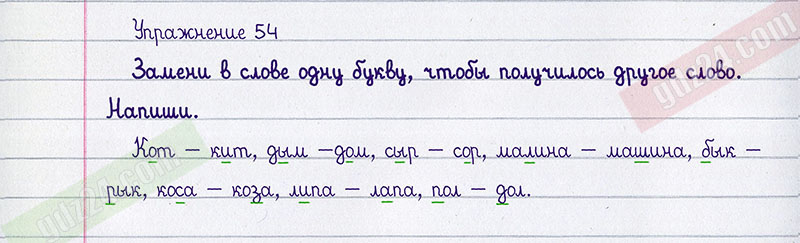 Упражнение 54
Замени в слове одну букву, чтобы получилось другое слово.
Напиши.
Кот – кит, дым –дом, сыр – сор, малина – машина, бык –
рык, коса – коза, липа – лапа, пол – дол.
gdz24.com
gdz24.com